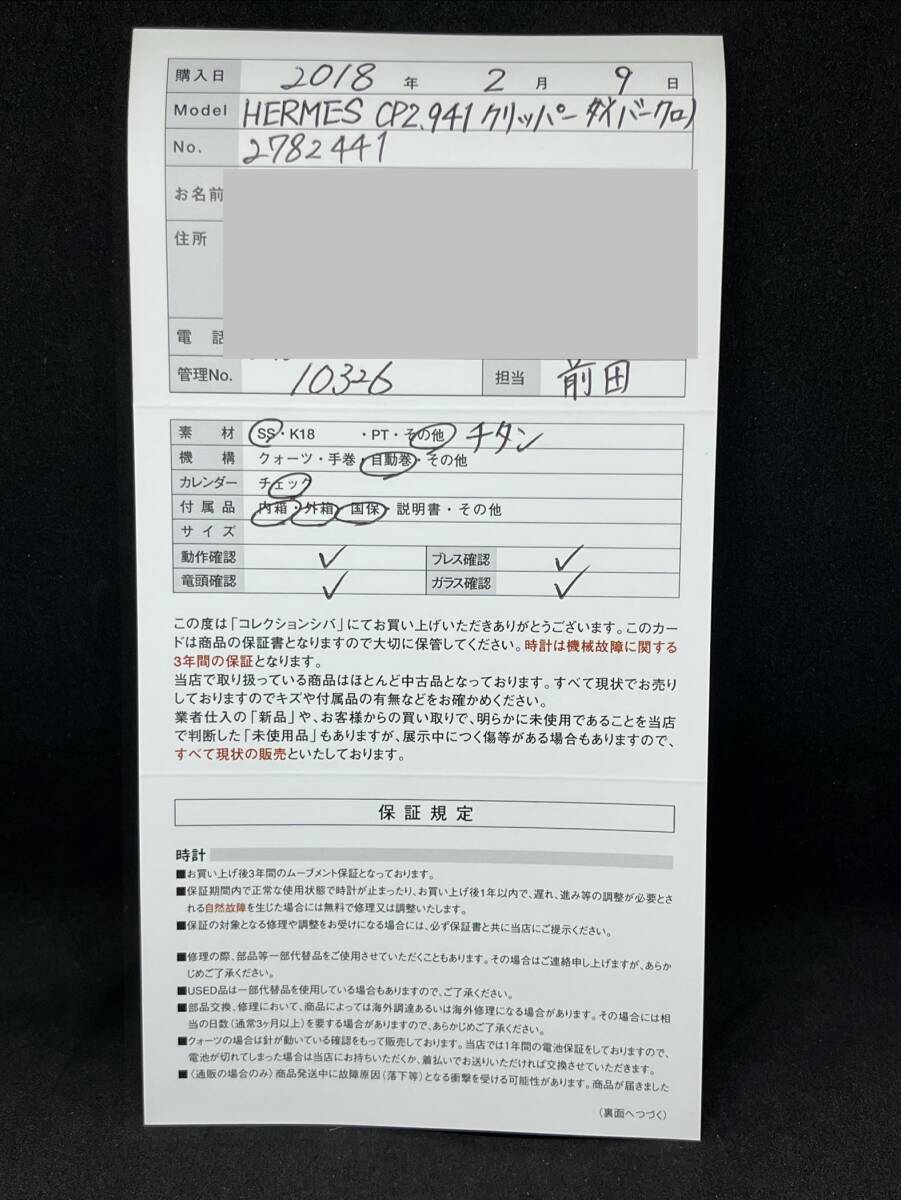 購入日 2018 年 2 月 9 日
Model HERMES CP2.941 クリッパー ダイバークロノ
No. 2782441
お名前
住所
電 話
管理No. 10326 担当 前田
素 材 SS・K18 ・PT・その他 チタン
機 構 クォーツ・手巻・自動巻・その他
カレンダー チェック
付属品 内箱・外箱・国保・説明書・その他
サイズ
動作確認 ✓ ブレス確認 ✓
竜頭確認 ✓ ガラス確認 ✓
この度は「コレクションシバ」にてお買い上げいただきありがとうございます。このカー
ドは商品の保証書となりますので大切に保管してください。時計は機械故障に関する
3年間の保証となります。
当店で取り扱っている商品はほとんど中古品となっております。すべて現状でお売り
しておりますのでキズや付属品の有無などをお確かめください。
業者仕入の「新品」や、お客様からの買い取りで、明らかに未使用であることを当店
で判断した「未使用品」もありますが、展示中につく傷等がある場合もありますので、
すべて現状の販売といたしております。
保証規定
時計
■お買い上げ後3年間のムーブメント保証となっております。
■保証期間内で正常な使用状態で時計が止まったり、お買い上げ後1年以内で、遅れ、進み等の調整が必要とさ
れる自然故障を生じた場合には無料で修理又は調整いたします。
■保証の対象となる修理や調整をお受けになる場合には、必ず保証書と共に当店にご提示ください。
■修理の際、部品等一部代替品をご使用させていただくこともあります。その場合はご連絡申し上げますが、あらか
じめご了承ください。
■USED品は一部代替品を使用している場合もありますので、ご了承ください。
■部品交換、修理において、商品によっては海外調達あるいは海外修理になる場合があります。その場合には相
当の日数（通常3ヶ月以上）を要する場合がありますので、あらかじめご了承ください。
■クォーツの場合は針が動いている確認をもって販売しております。当店では1年間の電池保証をしておりますので、
電池が切れてしまった場合は当店にお持ちいただくか、着払いでお送りいただければ交換させていただきます。
■（通販の場合のみ）商品発送中に故障原因（落下等）となる衝撃を受ける可能性があります。商品が届きました
（裏面へつづく）